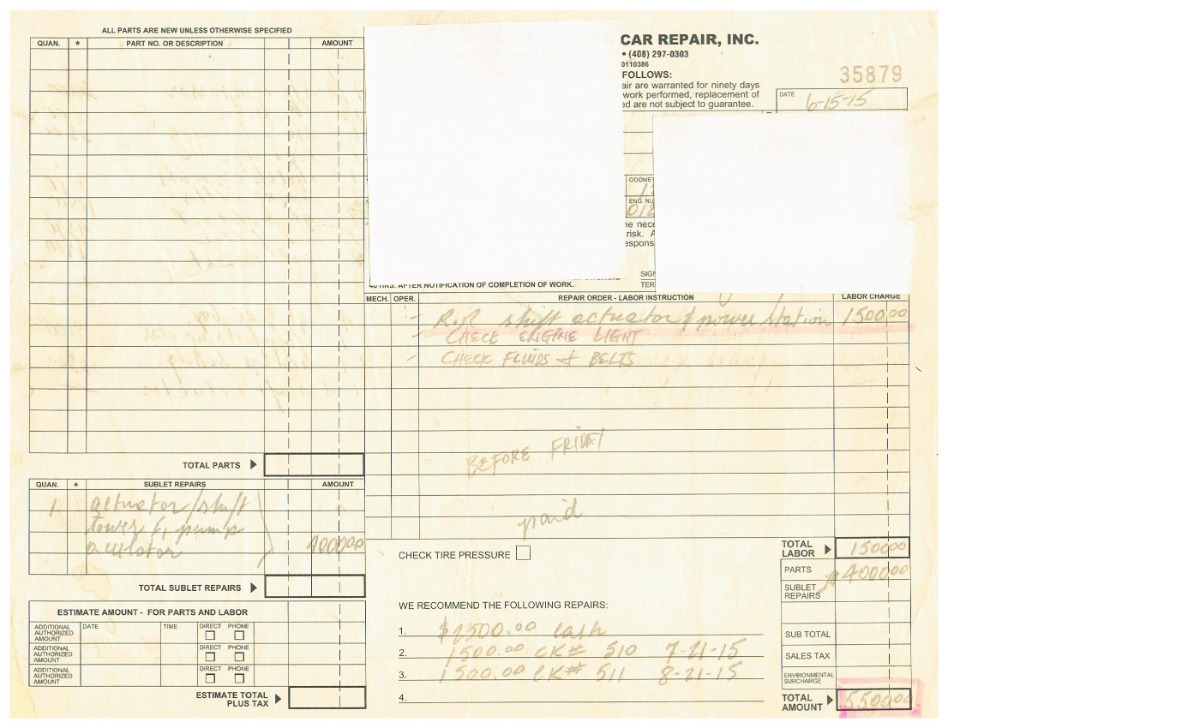 ALL PARTS ARE NEW UNLESS OTHERWISE SPECIFIED
QUAN. * PART NO. OR DESCRIPTION AMOUNT
CAR REPAIR, INC.
• (408) 297-0303
0110386
FOLLOWS:
air are warranted for ninety days
work performed, replacement of
ed are not subject to guarantee.
35879
DATE 6-15-15
ODOMET
ENG. NU
012
he nece
risk. A
espons
SIGN
TER
48 HRS. AFTER NOTIFICATION OF COMPLETION OF WORK.
MECH. OPER. REPAIR ORDER - LABOR INSTRUCTION LABOR CHARGE
- shift actuator & power station 1500 00
- CHECK ENGINE LIGHT
- CHECK FLUIDS & BELTS
BEFORE
paid
TOTAL PARTS
QUAN. * SUBLET REPAIRS AMOUNT
1 actuator/shift
tower pump
4000 00
TOTAL SUBLET REPAIRS
ESTIMATE AMOUNT - FOR PARTS AND LABOR
ADDITIONAL AUTHORIZED AMOUNT DATE TIME DIRECT PHONE
ADDITIONAL AUTHORIZED AMOUNT DIRECT PHONE
ADDITIONAL AUTHORIZED AMOUNT DIRECT PHONE
ESTIMATE TOTAL
PLUS TAX
CHECK TIRE PRESSURE
WE RECOMMEND THE FOLLOWING REPAIRS:
1. $2500.00 cash
2. 1500.00 CK# 510 7-21-15
3. 1500.00 CK# 511 8-21-15
4.
TOTAL LABOR 1500 00
PARTS $4000 00
SUBLET REPAIRS
SUB TOTAL
SALES TAX
ENVIRONMENTAL SURCHARGE
TOTAL AMOUNT 5500 00